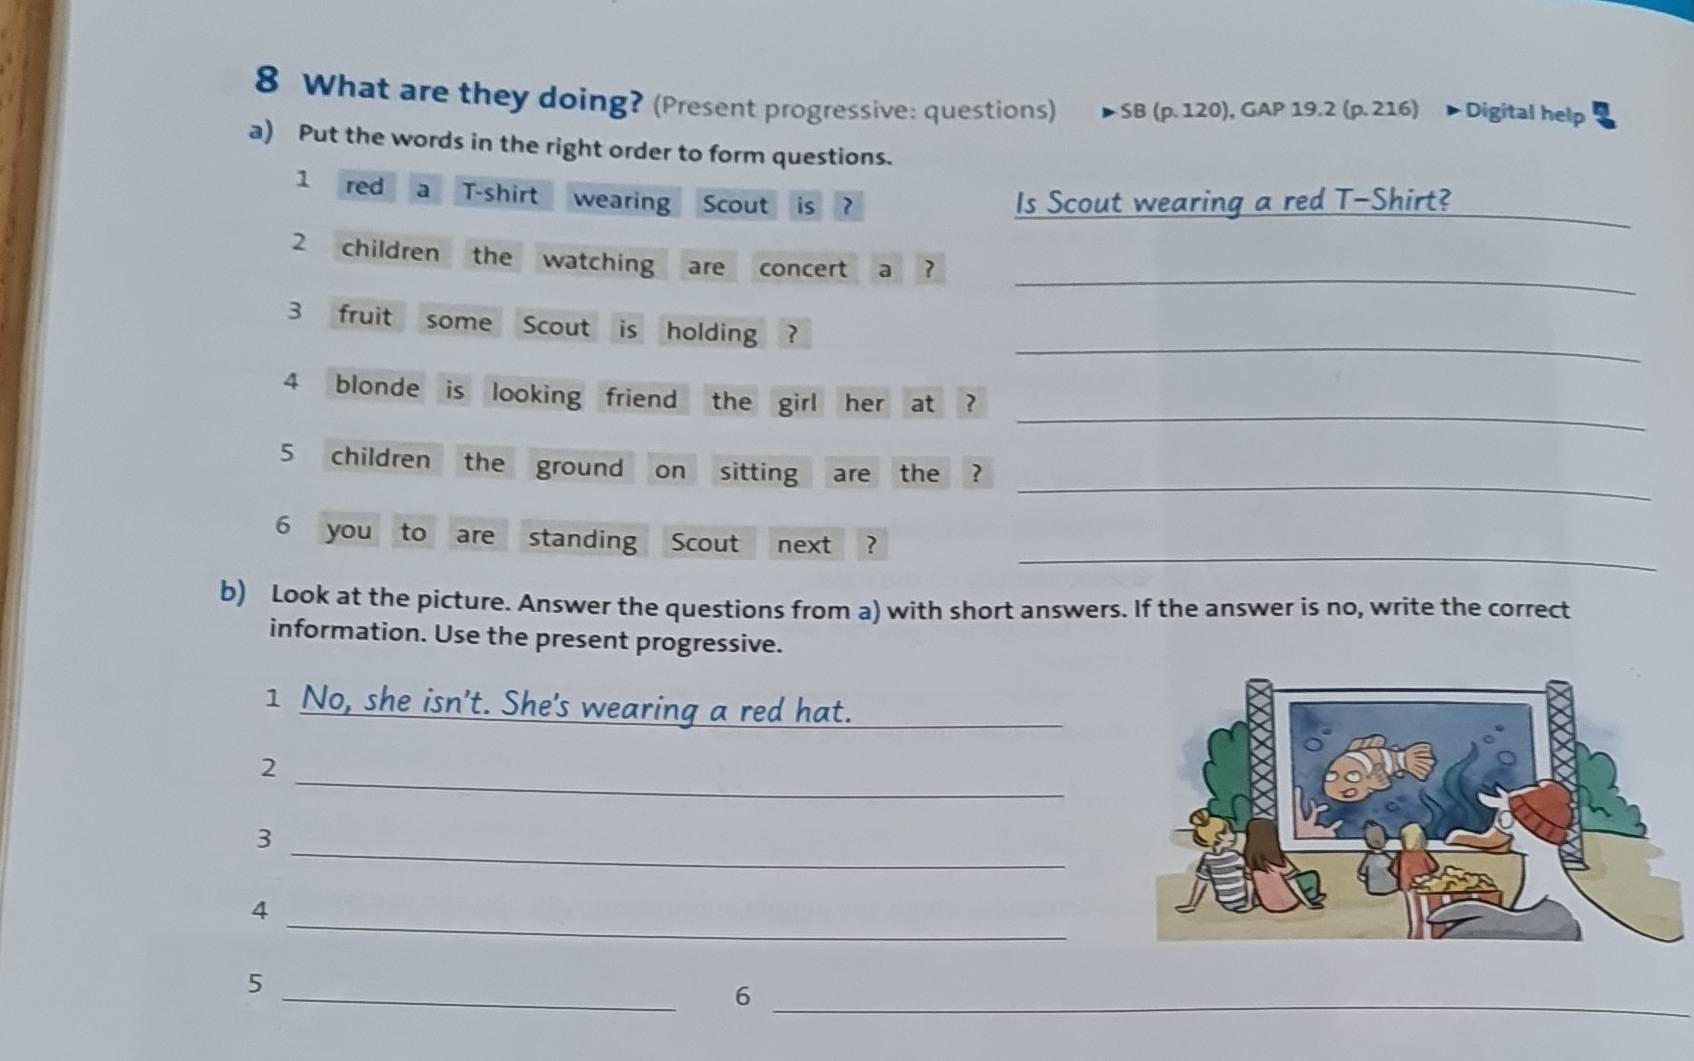 8 What are they doing? (Present progressive: questions) ▶ SB (p. 120), GAP 19.2 (p. 216) ▶ Digital help
a) Put the words in the right order to form questions.
1 red a T-shirt wearing Scout is ? Is Scout wearing a red T-Shirt?
2 children the watching are concert a ?
3 fruit some Scout is holding ?
4 blonde is looking friend the girl her at ?
5 children the ground on sitting are the ?
6 you to are standing Scout next ?
b) Look at the picture. Answer the questions from a) with short answers. If the answer is no, write the correct
information. Use the present progressive.
1 No, she isn't. She's wearing a red hat.
2
3
4
5 6